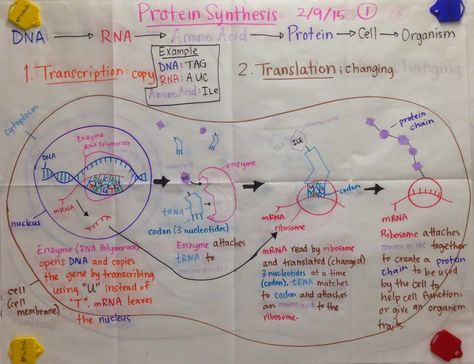 Protein Synthesis 2/9/15 1
DNA → RNA → Amino Acid → Protein → Cell → Organism
Example
DNA: TAG
RNA: AUC
Amino Acid: ILe
1. Transcription: copy
2. Translation: changing
cytoplasm
Enzyme
RNA Polymerase
DNA
mRNA
nucleus
cell
(cell
membrane)
amino acid
enzyme
tRNA
codon (3 nucleotides)
amino acid
ILE
codon
mRNA
ribosome
protein
chain
mRNA
Enzyme (RNA Polymerase)
opens DNA and copies
the gene by transcribing
using "U" instead of
"T". mRNA leaves
the nucleus
Enzyme attaches
tRNA to
amino acids
mRNA read by ribosome
and translated (changed)
3 nucleotides at a time
(codon). tRNA matches
to codon and attaches
an amino acid to the
ribosome.
Ribosome attaches
amino acids together
to create a protein
chain to be used
by the cell to
help cell function
or give an organism
traits.